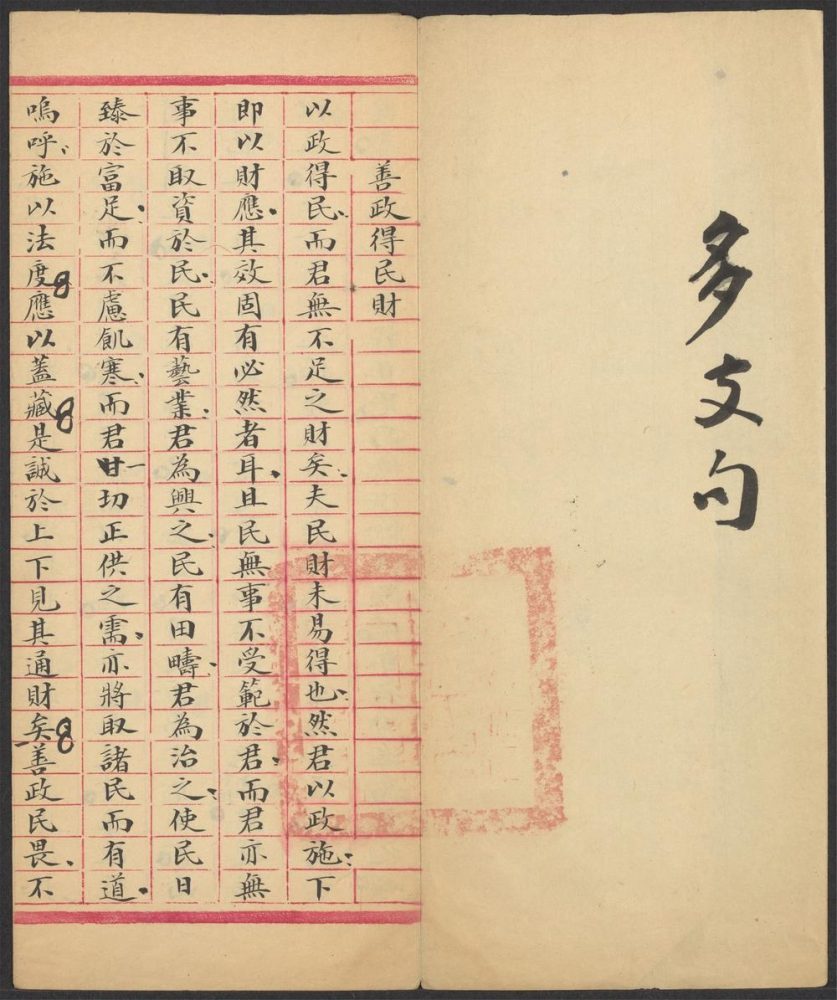 多支句
善政得民財
以政得民而君無不足之財矣夫民財未易得也然君以政施下
即以財應其效固有必然者耳且民無事不受範於君而君亦無
事不取資於民民有藝業君為興之民有田疇君為治之使民日
臻於富足而不慮飢寒而君一切正供之需亦將取諸民而有道
嗚呼施以法度應以蓋藏是誠於上下見其通財矣善政民畏不